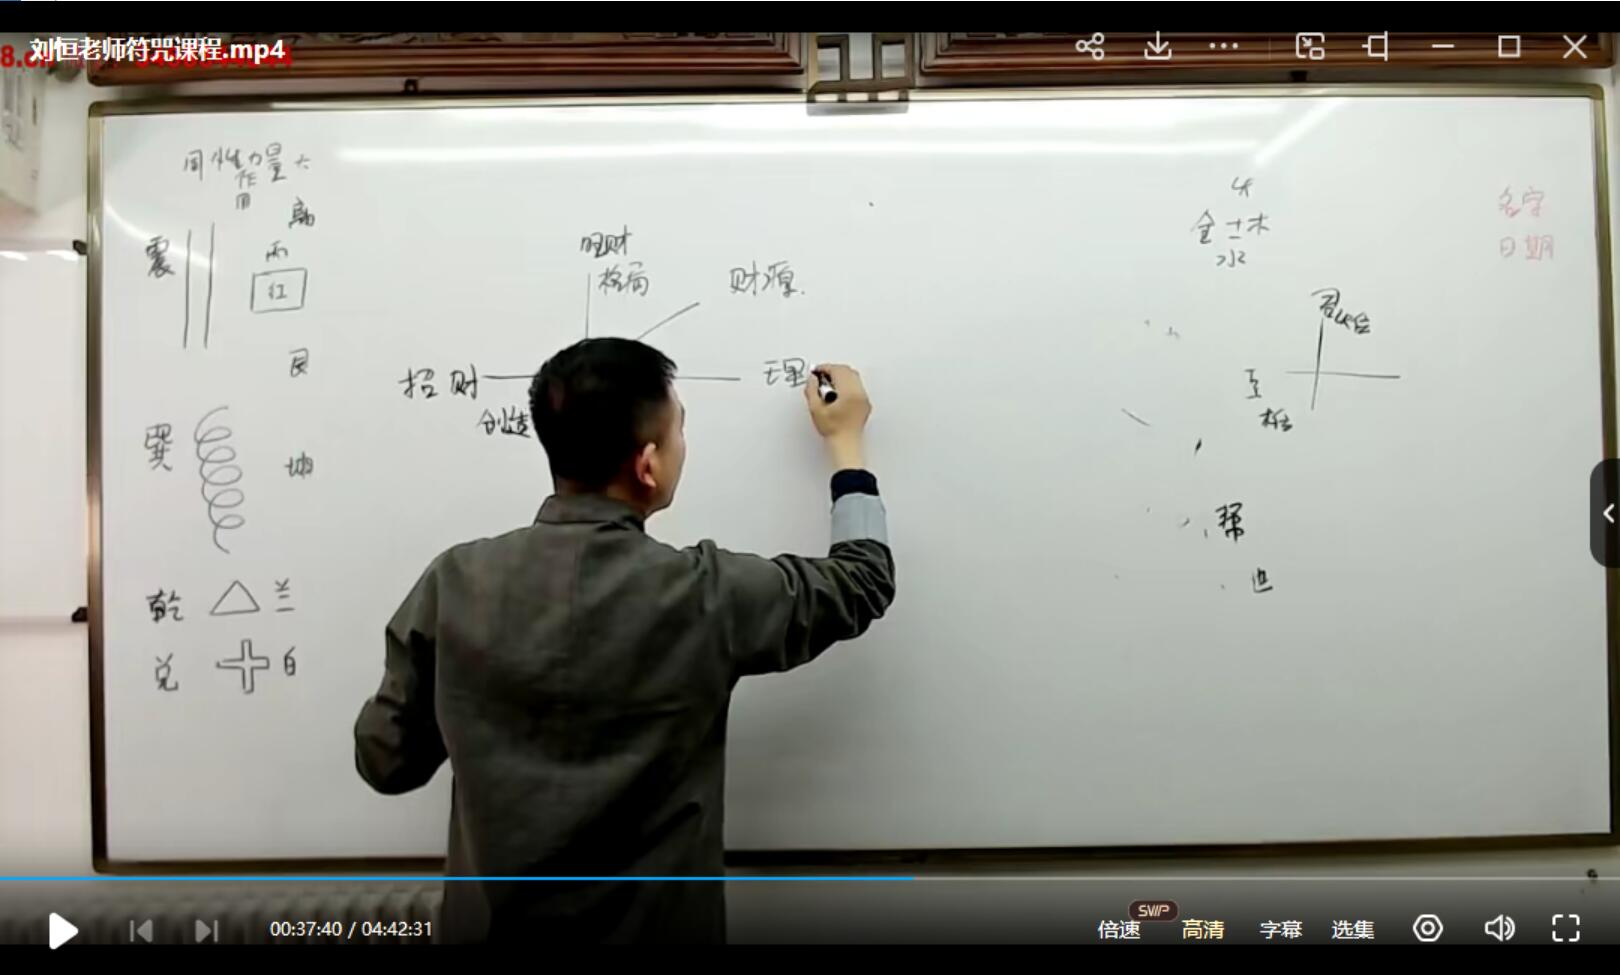 刘恒老师符咒课程.mp4
同性力量大
作用
震
离
丙
红
艮
巽
坤
乾
兰
兑
白
旺财
格局
财源
招财
创造
理
火
金土木
水
名字
日期
帮
也
00:37:40 / 04:42:31
SVIP
倍速
高清
字幕
选集